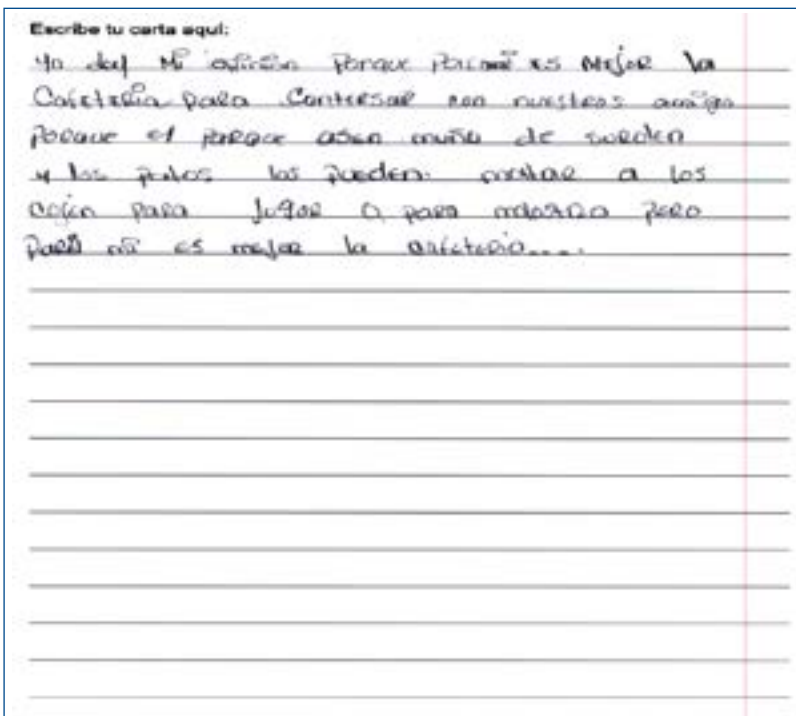 Escribe tu carta aquí:
Yo doy Mi opinión Porque Para mí es Mejor la
Cafetería para Conversar con nuestros amigo
Porque el parque asen de sorden
y los los pueden a los
para Jugar o para pero
para mí es mejor la cafeteria....